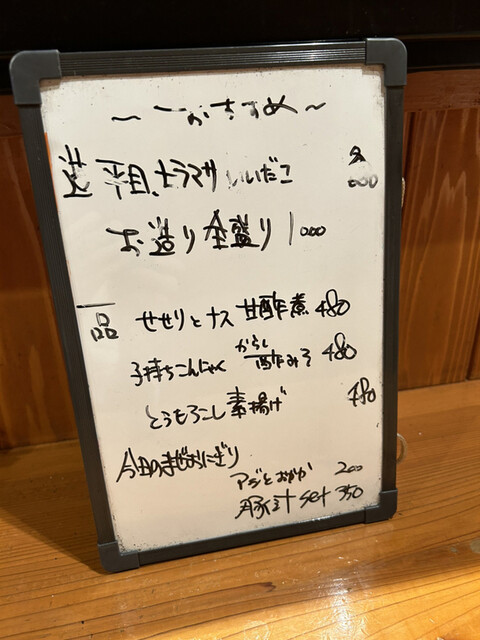 ~おすすめ~
造 平目、ヒラマサ いいだこ 各600
お造り全盛り 1000
一品 せせりとナス 甘酢煮 480
子持ちこんにゃく からし酢みそ 480
とうもろこし素揚げ 480
今日のまぜおにぎり
アジとおかか 200
豚汁set 350